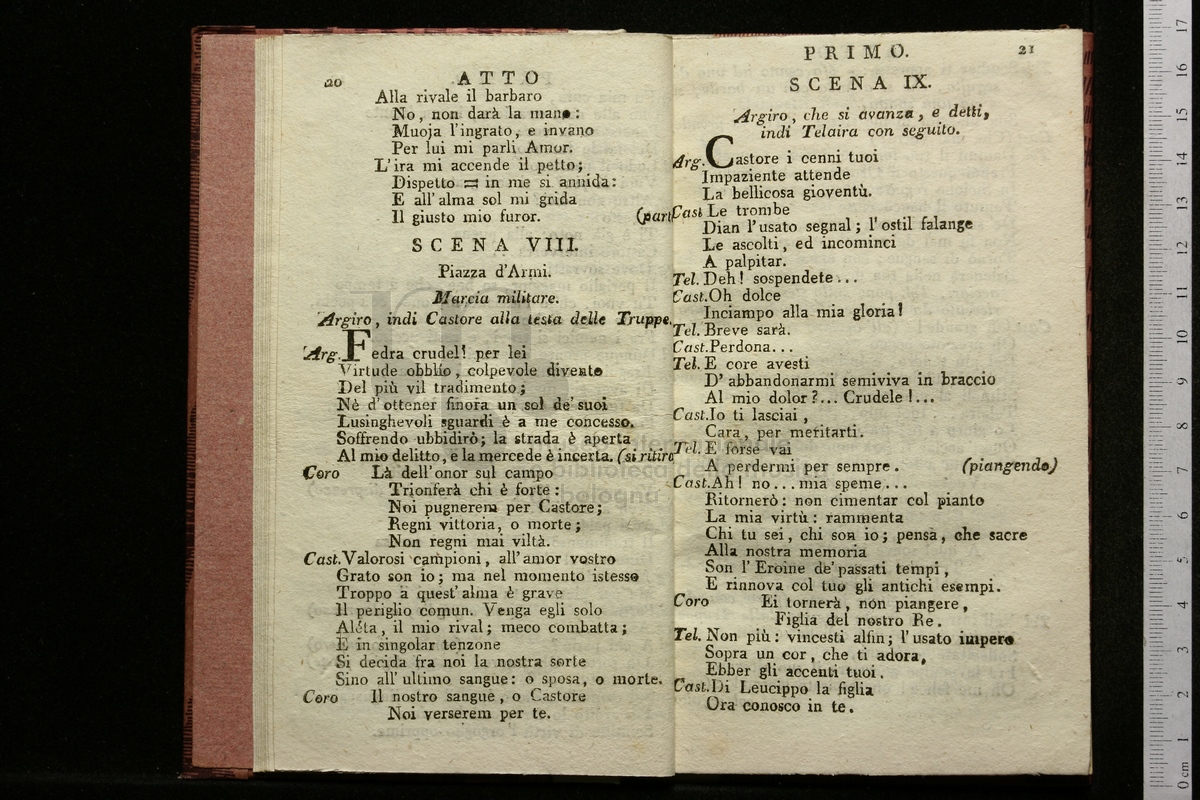 20
ATTO
Alla rivale il barbaro
No, non darà la mano:
Muoja l'ingrato, e invano
Per lui mi parli Amor.
L'ira mi accende il petto;
Dispetto in me si annida:
E all'alma sol mi grida
Il giusto mio furor. (part
SCENA VIII.
Piazza d'Armi.
Marcia militare.
Argiro, indi Castore alla testa delle Truppe.
Arg. Fedra crudel! per lei
Virtude obblìo, colpevole divento
Del più vil tradimento;
Nè d'ottener finora un sol de'suoi
Lusinghevoli sguardi è a me concesso.
Soffrendo ubbidirò; la strada è aperta
Al mio delitto, e la mercede è incerta. (si ritira
Coro Là dell'onor sul campo
Trionferà chi è forte:
Noi pugnerem per Castore;
Regni vittoria, o morte;
Non regni mai viltà.
Cast. Valorosi campioni, all'amor vostro
Grato son io; ma nel momento istesso
Troppo a quest'alma è grave
Il periglio comun. Venga egli solo
Aléta, il mio rival; meco combatta;
E in singolar tenzone
Si decida fra noi la nostra sorte
Sino all'ultimo sangue: o sposa, o morte.
Coro Il nostro sangue, o Castore
Noi verserem per te.
PRIMO.
21
SCENA IX.
Argiro, che si avanza, e detti,
indi Telaira con seguito.
Arg. Castore i cenni tuoi
Impaziente attende
La bellicosa gioventù.
Cast Le trombe
Dian l'usato segnal; l'ostil falange
Le ascolti, ed incominci
A palpitar.
Tel. Deh! sospendete...
Cast. Oh dolce
Inciampo alla mia gloria!
Tel. Breve sarà.
Cast. Perdona...
Tel. E core avesti
D'abbandonarmi semiviva in braccio
Al mio dolor?... Crudele!...
Cast. Io ti lasciai,
Cara, per meritarti.
Tel. E forse vai
A perdermi per sempre. (piangendo)
Cast. Ah! no... mia speme...
Ritornerò: non cimentar col pianto
La mia virtù: rammenta
Chi tu sei, chi son io; pensa, che sacre
Alla nostra memoria
Son l'Eroine de'passati tempi,
E rinnova col tuo gli antichi esempi.
Coro Ei tornerà, non piangere,
Figlia del nostro Re.
Tel. Non più: vincesti alfin; l'usato impero
Sopra un cor, che ti adora,
Ebber gli accenti tuoi.
Cast. Di Leucippo la figlia
Ora conosco in te.
0 cm 1 2 3 4 5 6 7 8 9 10 11 12 13 14 15 16 17